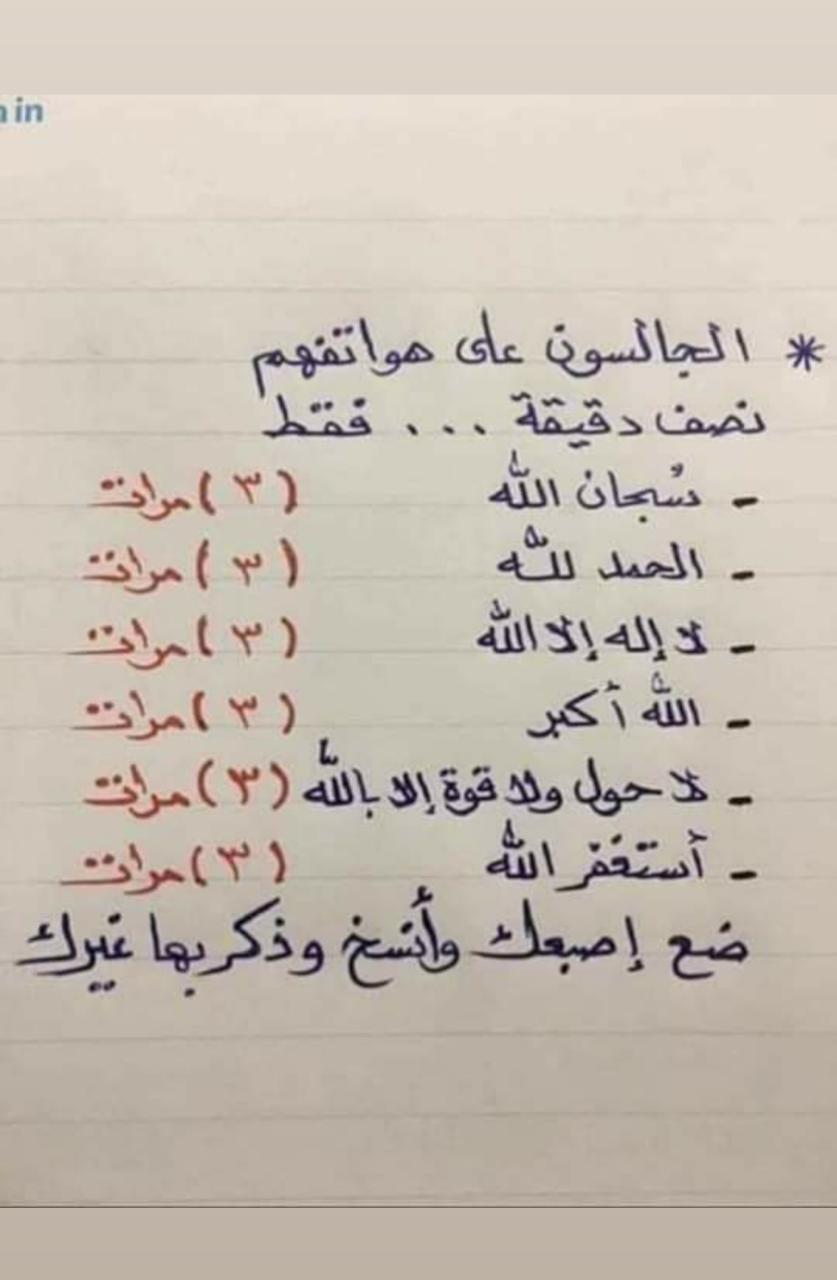 in
* الجالسون على هواتفهم
نصف دقيقة ... فقط
- سُبحان الله (٣) مرات
- الحمد لله (٣) مرات
- لا إله إلا الله (٣) مرات
- الله أكبر (٣) مرات
- لا حول ولا قوة إلا بالله (٣) مرات
- أستغفر الله (٣) مرات
ضع إصبعك وأنسخ وذكر بها غيرك